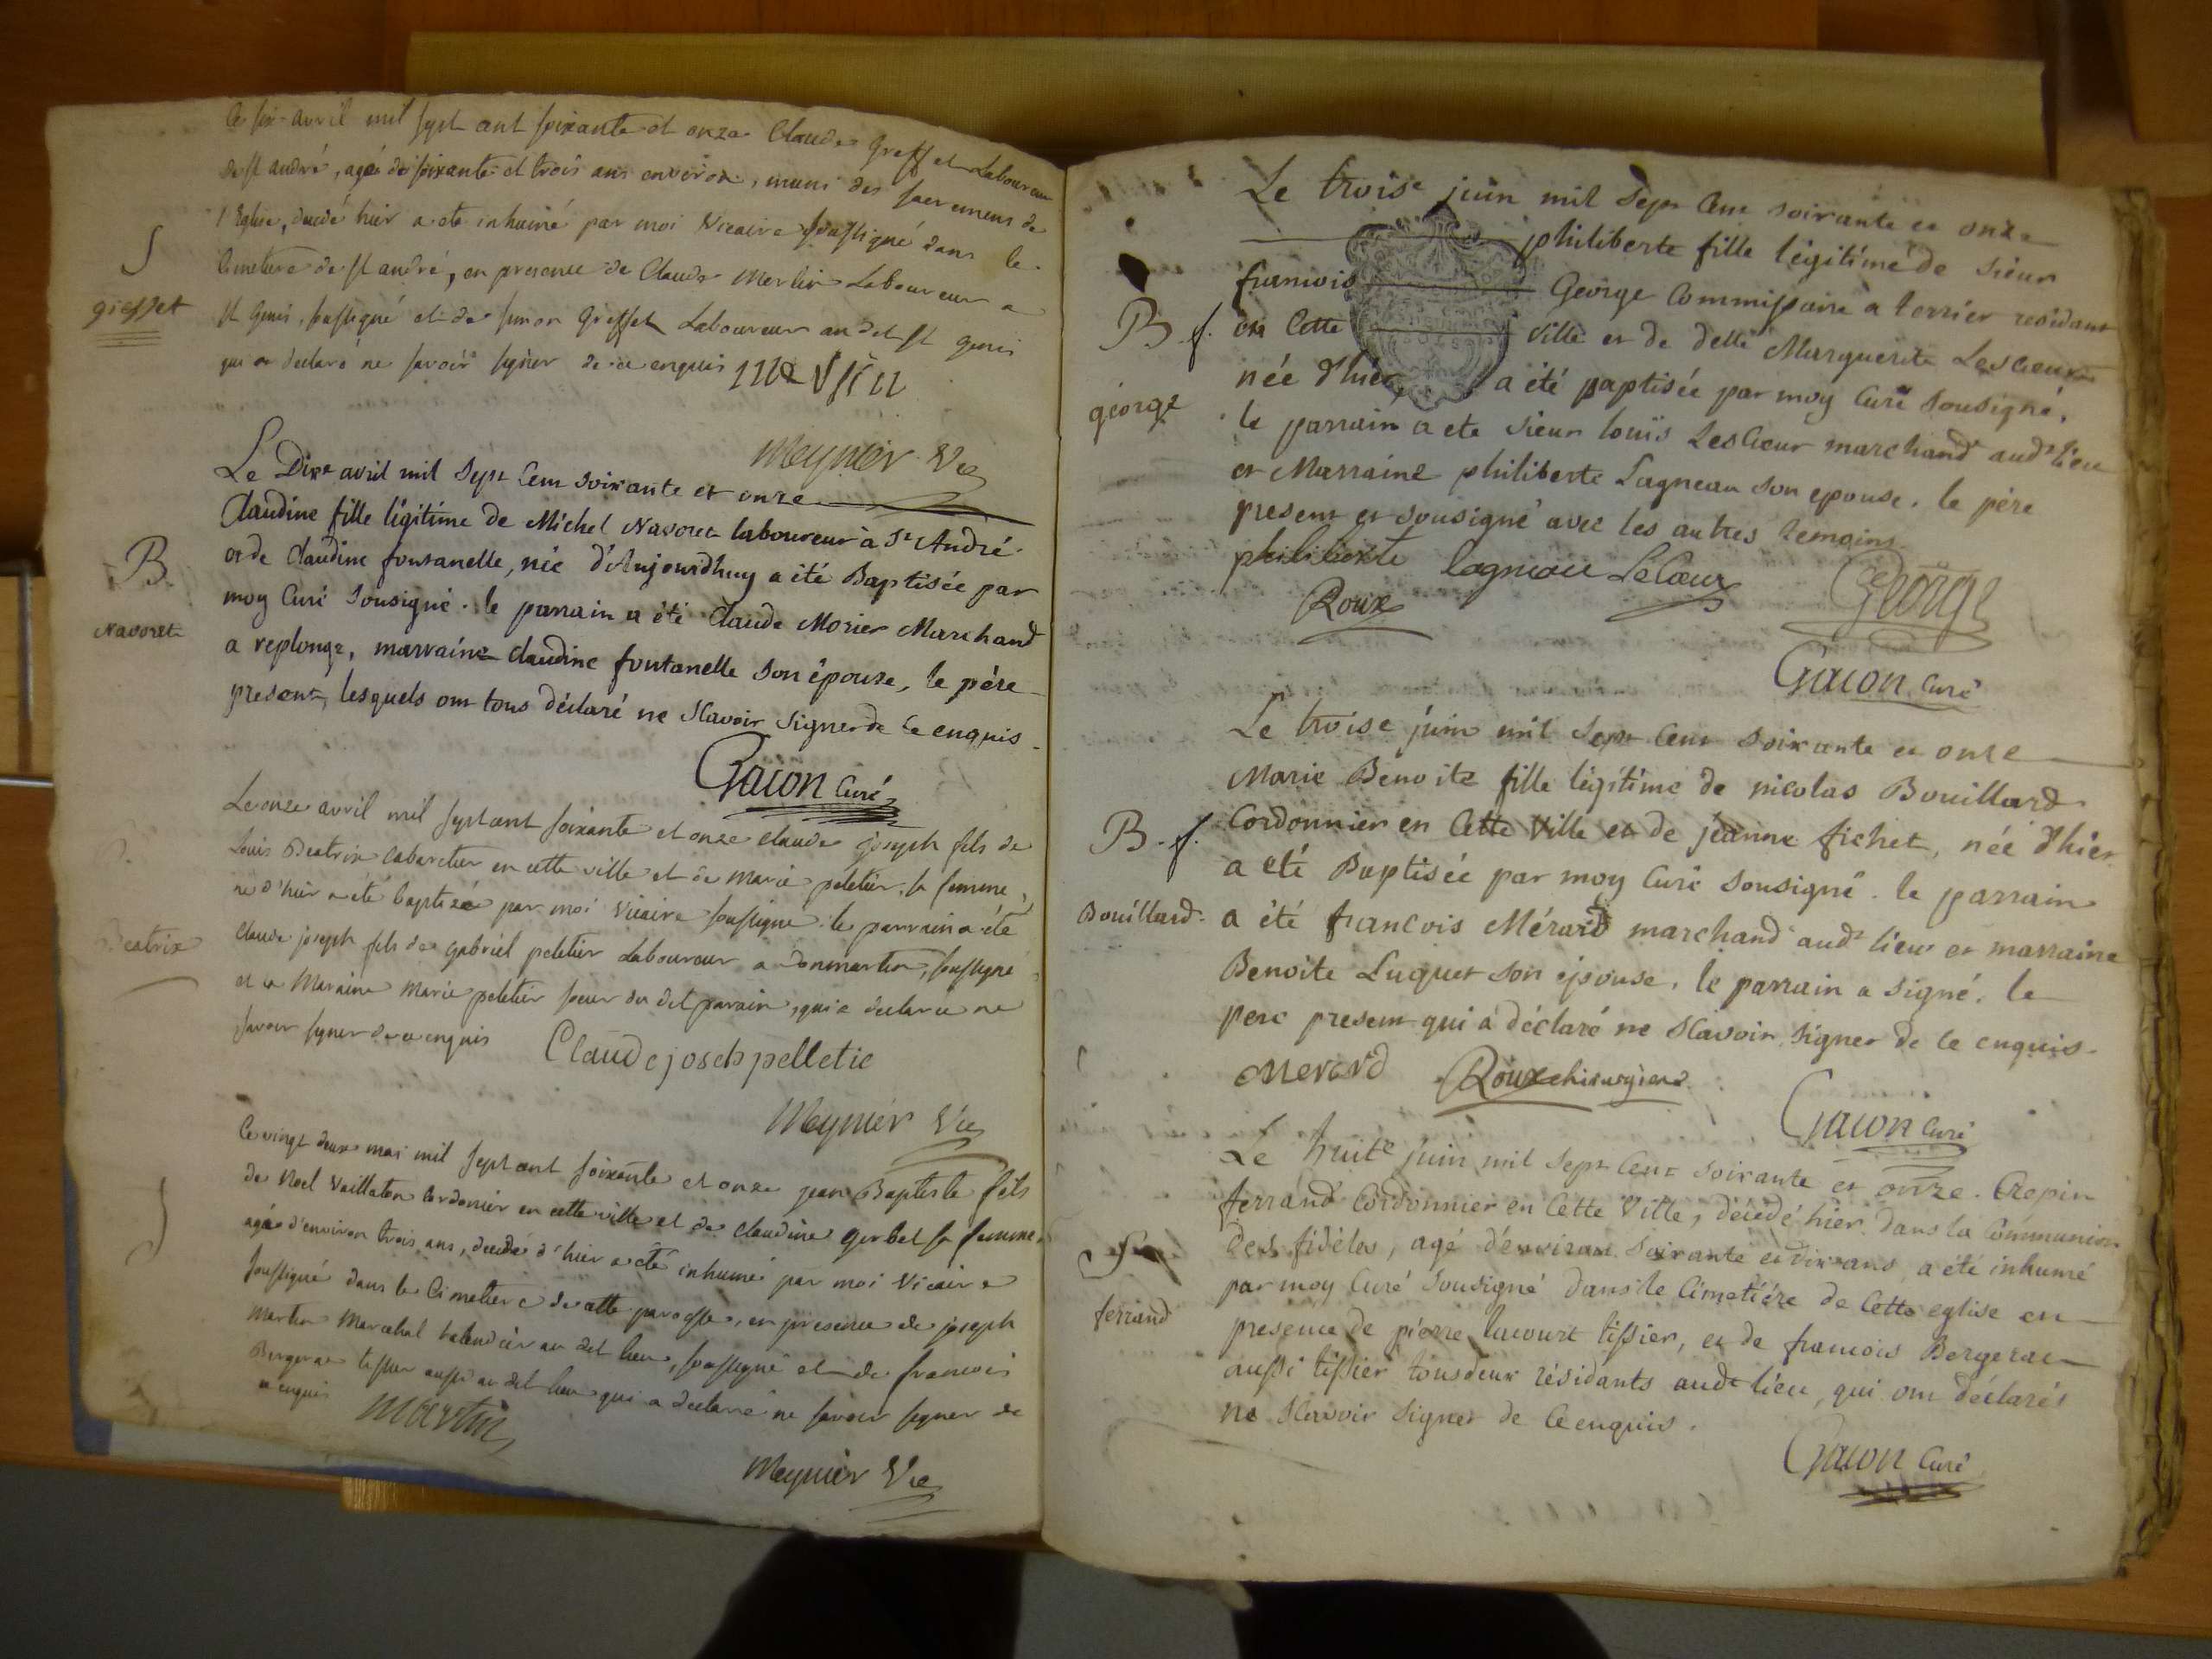 Ce six avril mil sept cent soixante et onze Claude Greffet Laboureur
de st andré, agé de soixante et trois ans environ, muni des sacremens de
l'Eglise, decedé hier a eté inhumé par moi Vicaire soussigné dans le
Cimetiere de st andré, en presence de Claude Merlin Laboureur a
st genis, soussigné et de simon Greffet Laboureur au dit st genis
qui a declaré ne savoir signer de ce enquis
S
greffet
Meynier Vic
Le Dixe avril mil Sept Cent soixante et onze
Claudine fille légitime de Michel Navoret laboureur à St André
et de Claudine fontanelle, née d'Aujourdhuy a été Baptisée par
moy Curé Sousigné. le parrain a été Claude Morier Marchand
a replonge, marraine Claudine fontanelle Son épouse, le pére
present, lesquels ont tous déclaré ne Scavoir Signer de Ce enquis
B.
Navoret
Gacon Curé
Le onze avril mil sept cent soixante et onze claude joseph fils de
Louis Beatrix cabaretier en cette ville et de marie peletier sa femme,
né d'hier a eté baptizé par moi Vicaire soussigné le parrain a eté
Claude joseph fils de gabriel peletier Laboureur a Donmartin, soussigné
et la Maraine Marie peletier soeur du dit parain, qui a declaré ne
savoir signer de ce enquis
Beatrix
Claude joseph pelletie
Meynier Vic
Ce vingt deux mai mil sept cent soixante et onze jean Baptiste fils
de Noel Vaillaton Cordonier en cette ville et de claudine gerbet sa femme,
agé d'environ trois ans, decedé d'hier a eté inhumé par moi Vicaire
soussigné dans le Cimetiere de cette paroisse, en presence de joseph
Martin Marechal taland ier au dit lieu, soussigné et de francois
Bergerac tissier aussi au dit lieu qui a declaré ne savoir signer de
ce enquis
S
martin
Meynier Vic
Le troise juin mil Sept Cent soixante et onze
philiberte fille légitime de Sieur
francois George Commissaire a terrier residant
en Cette Ville et de delle Marguerite Lescoeur
née d'hier, a été paptisée par moy Curé Sousigné,
le parrain a ete Sieur louïs Lescoeur marchand audt lieu
et Marraine philiberte Lagneau son epouse. le père
present et sousigné avec les autres temoins
B. f.
géorge
philiberte lagniau LeCoeur George
Roux
Gacon Curé
Le troise juin mil Sept Cent Soixante et onze
Marie Benoite fille légitime de nicolas Bouillard
Cordonnier en Cette Ville et de jeanne fichet, née d'hier
a eté Baptisée par moy Curé Sousigné. le parrain
a été francois Mérard marchand audt lieu et marraine
Benoite Luquet son épouse, le parrain a signé, le
pere present qui a déclaré ne Scavoir Signer de Ce enquis.
B. f.
Bouillard.
Merard Roux chirurgien
Gacon Curé
Le huite juin mil Sept Cent Soixante et onze. Crepin
ferrand Cordonnier en Cette Ville, décedé hier dans la Communion
des fidéles, agé d'environ Soixante et dix ans, a été inhumé
par moy Curé Sousigné dans le Cimetiére de Cette eglise en
presence de pierre lacourt tissier, et de francois Bergerac
aussi tissier tous deux résidants audt lieu, qui ont déclarés
ne Scavoir Signer de Ce enquis.
S
ferrand
Gacon Curé